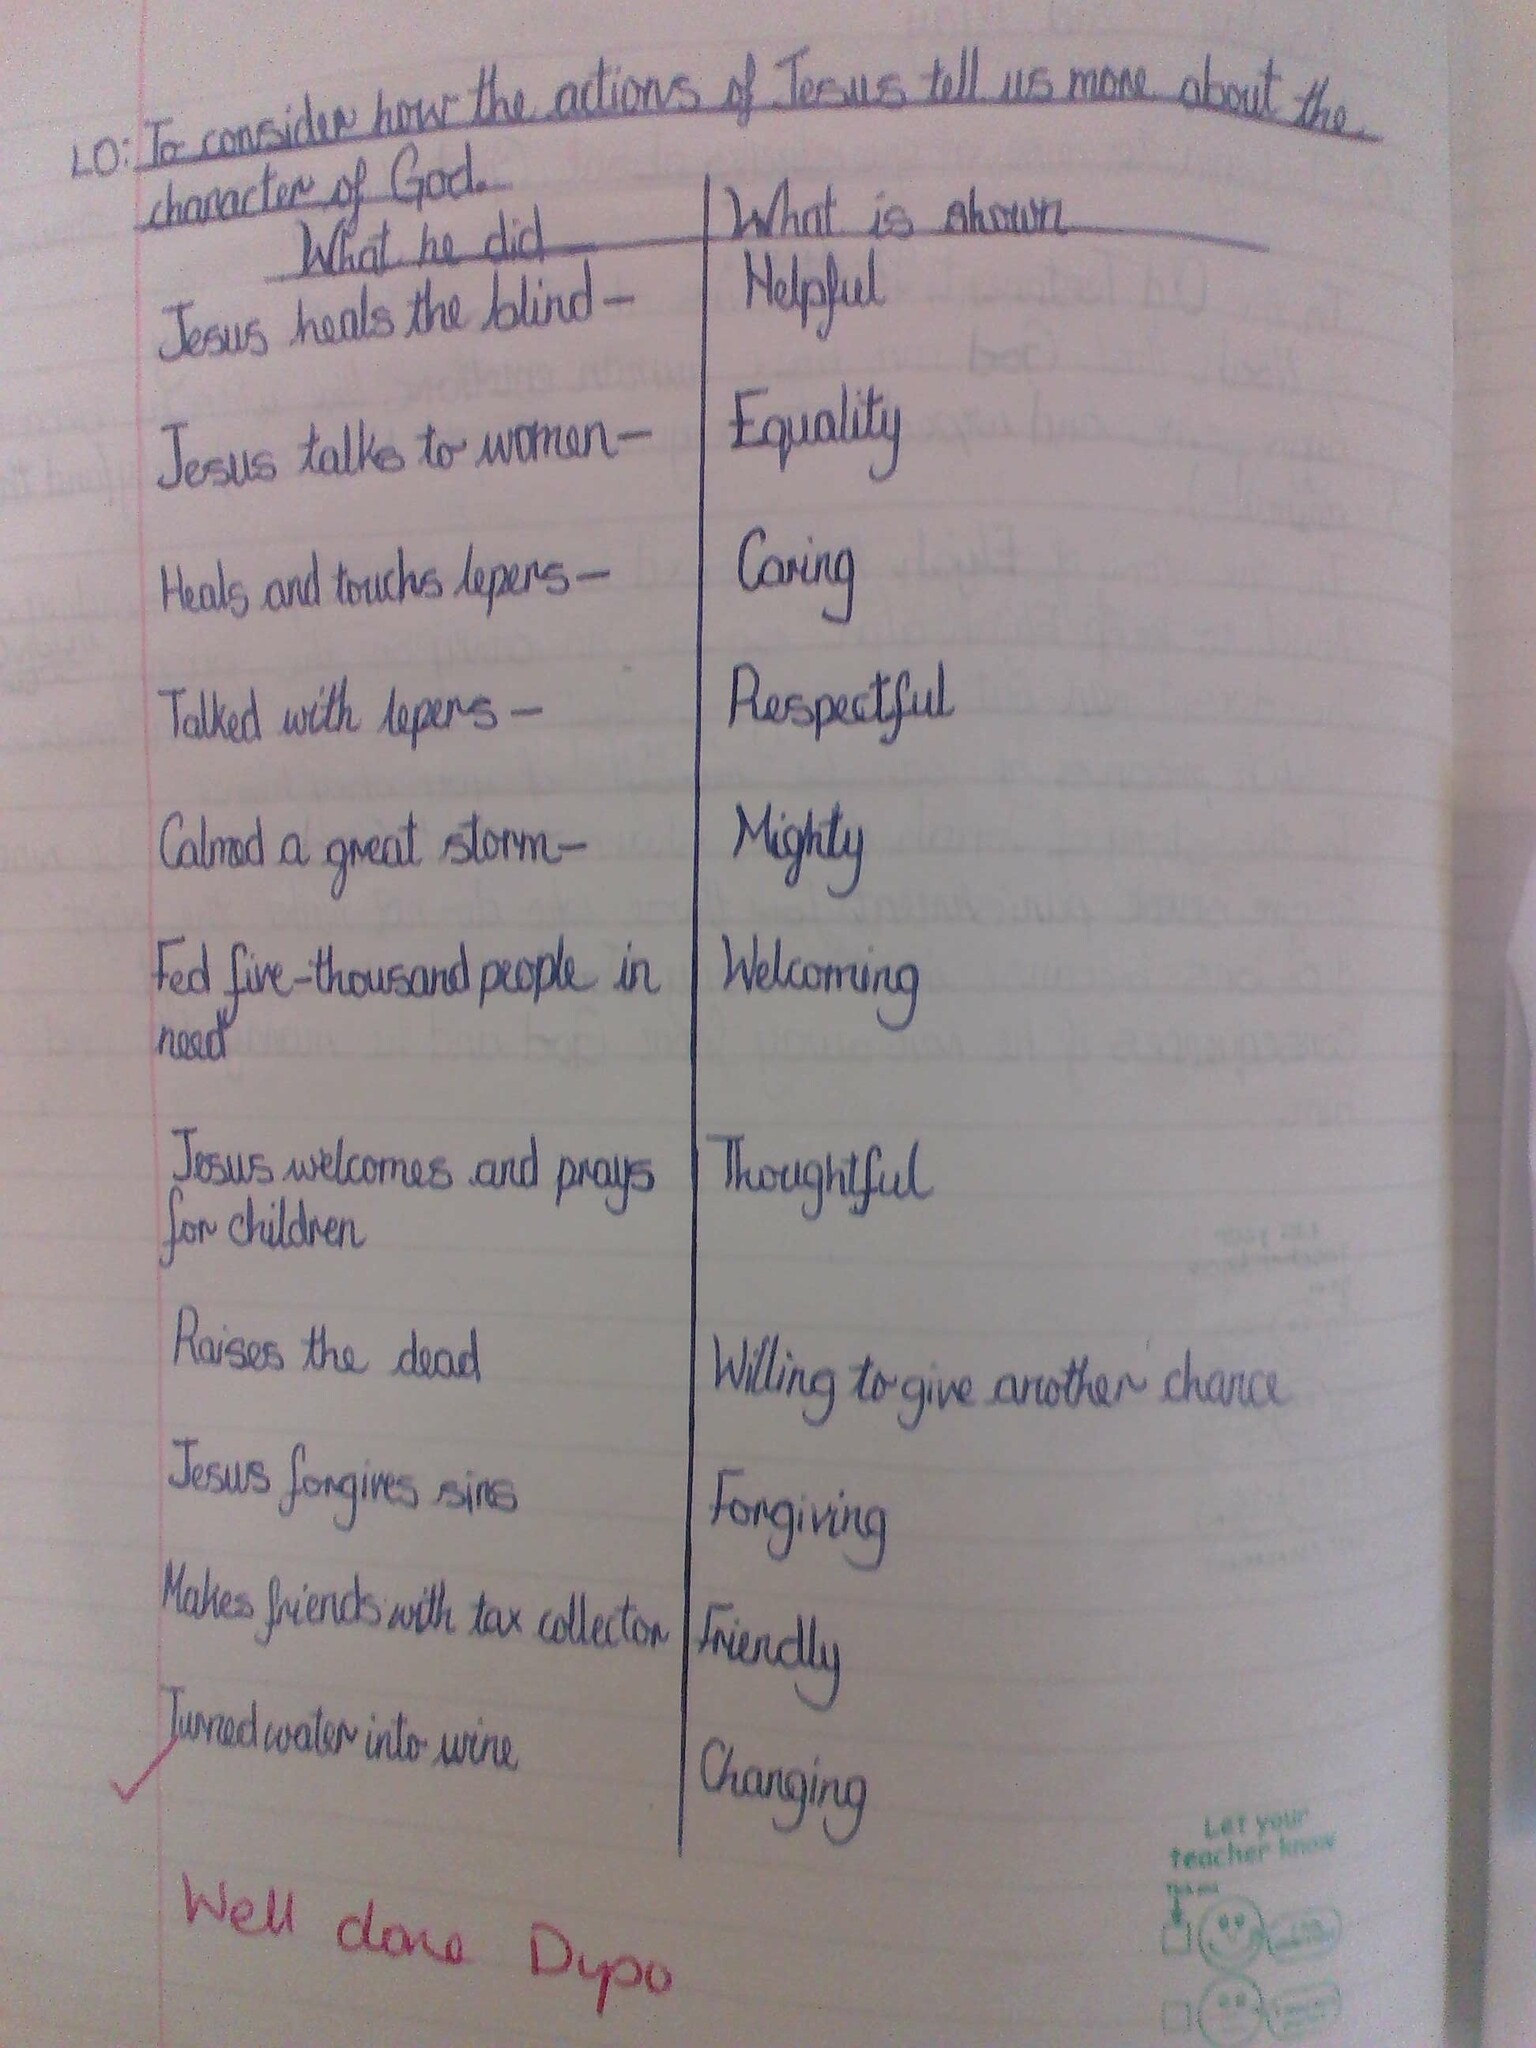 LO: To consider how the actions of Jesus tell us more about the
character of God.
What he did
What is shown
Jesus heals the blind –
Helpful
Jesus talks to women –
Equality
Heals and touchs lepers –
Caring
Talked with lepers –
Respectful
Calmed a great storm –
Mighty
Fed five-thousand people in
need
Welcoming
Jesus welcomes and prays
for children
Thoughtful
Raises the dead
Willing to give another chance
Jesus forgives sins
Forgiving
Makes friends with tax collector
Friendly
Turned water into wine
Changing
Well done Dypo
Let your
teacher know